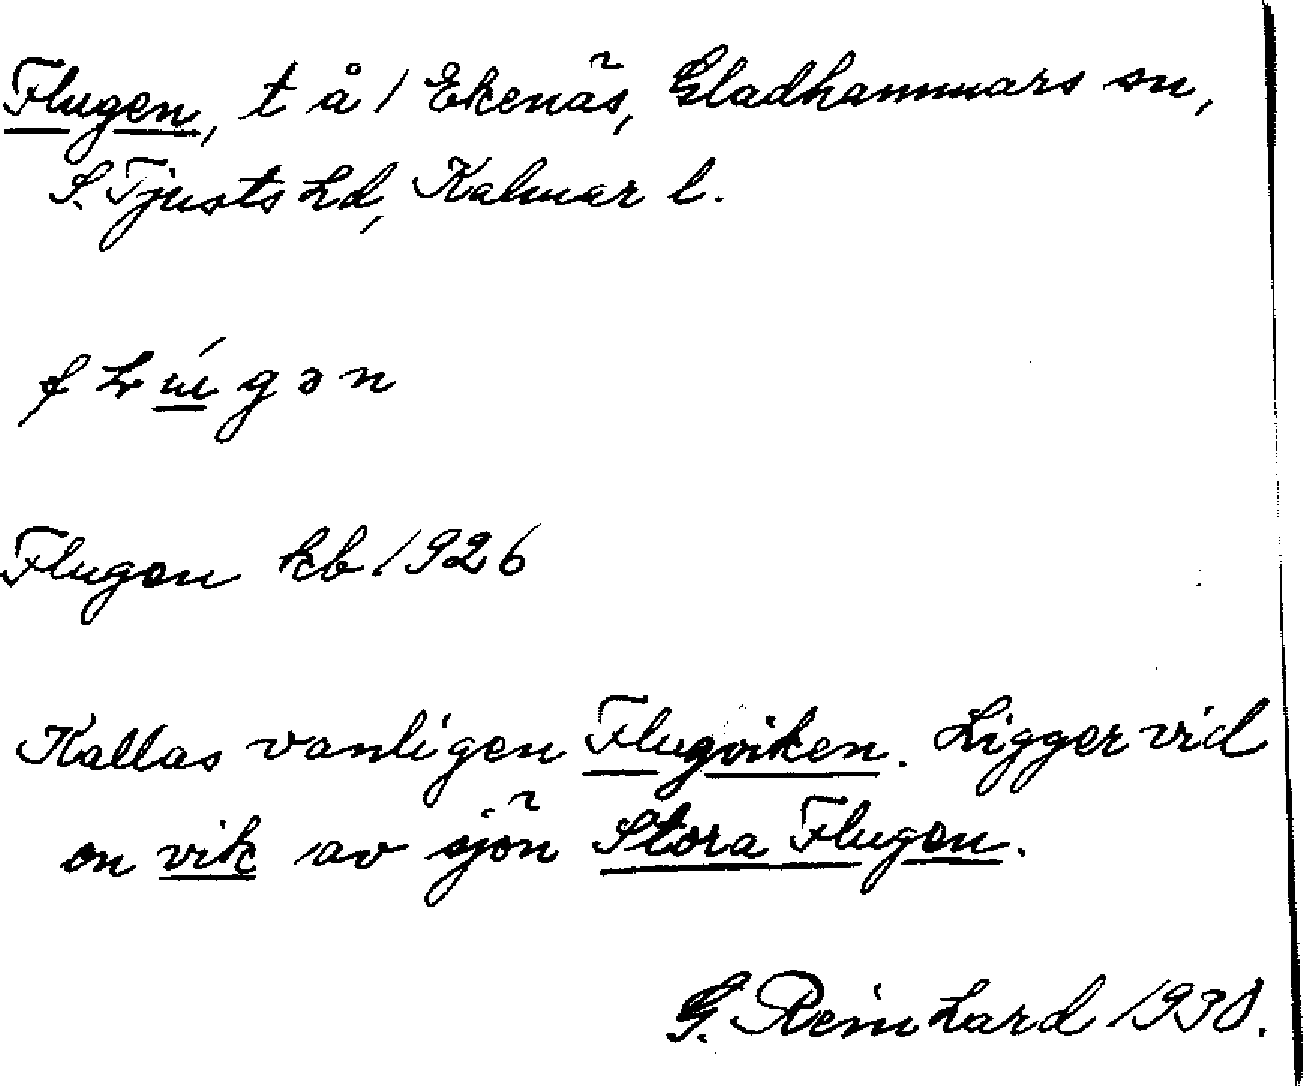 Flugen, t å 1 Ekenäs, Gladhammars sn,
S. Tjusts hd, Kalmar l.
Flugen kb 1926
Kallas vanligen Flugviken. Ligger vid
en vik av sjön Stora Flugen.
G. Reinhard 1930.